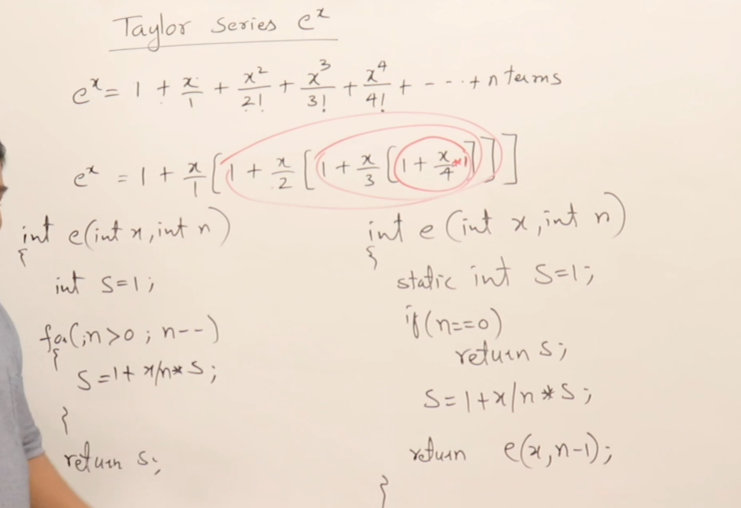 Taylor Series e^x
e^x = 1 + x/1 + x^2/2! + x^3/3! + x^4/4! + - - - + n terms
e^x = 1 + x/1 [ 1 + x/2 [ 1 + x/3 [ 1 + x/4 *1 ] ] ]
int e(int x, int n)
{
int s=1;
for(;n>0; n--)
{
s=1+ x/n* s;
}
return s;
int e (int x, int n)
{
static int s=1;
if(n==0)
return s;
s=1+x/n *s;
return e(x,n-1);
}